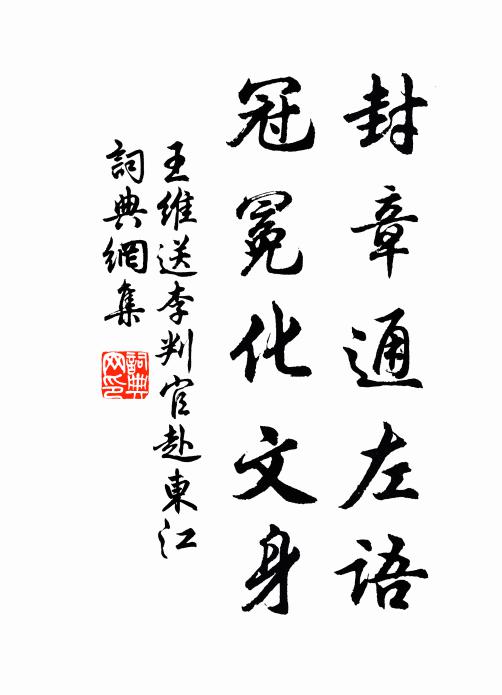 封章通左語
冠冕化文身
王維送李判官赴東江
詞典網集
詞典網印